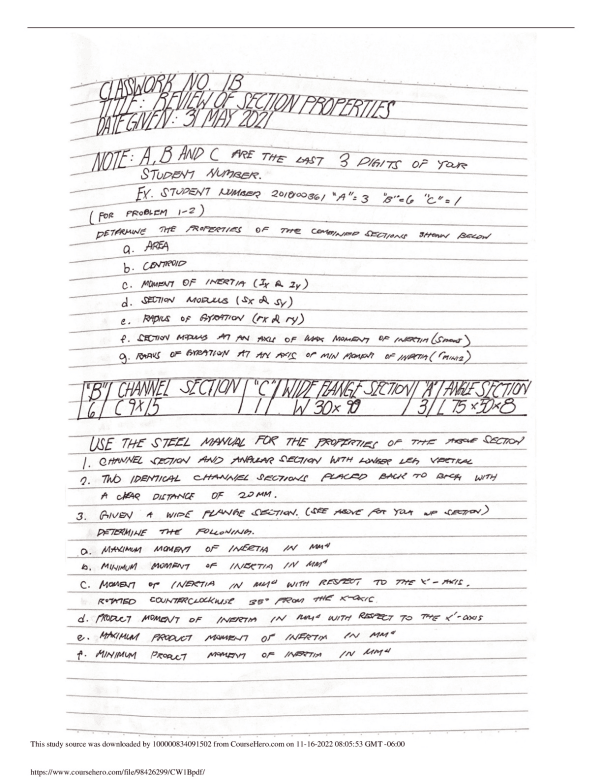 CLASSWORK NO 1B
TITLE: REVIEW OF SECTION PROPERTIES
DATE GIVEN: 31 MAY 2021
NOTE: A, B AND C ARE THE LAST 3 DIGITS OF YOUR
STUDENT NUMBER.
EX. STUDENT NUMBER 201800361 "A"=3 "B"=6 "C"=1
(FOR PROBLEM 1-2)
DETERMINE THE PROPERTIES OF THE COMBINED SECTIONS SHOWN BELOW
a. AREA
b. CENTROID
c. MOMENT OF INERTIA (Ix & Iy)
d. SECTION MODULUS (Sx & Sy)
e. RADIUS OF GYRATION (rx & ry)
f. SECTION MODULUS AT AN AXIS OF MAX MOMENT OF INERTIA
g. RADIUS OF GYRATION AT AN AXIS OF MIN MOMENT OF INERTIA
"B" CHANNEL SECTION "C" WIDE FLANGE SECTION "A" ANGLE SECTION
6 C 9x15 1 W 30x 90 3 L 75 x50x8
USE THE STEEL MANUAL FOR THE PROPERTIES OF THE ANGLE SECTION
1. CHANNEL SECTION AND ANGULAR SECTION WITH LONGER LEG VERTICAL
2. TWO IDENTICAL CHANNEL SECTIONS PLACED BACK TO BACK WITH
A CLEAR DISTANCE OF 20MM.
3. GIVEN A WIDE FLANGE SECTION. (SEE ABOVE FOR YOUR WF SECTION)
DETERMINE THE FOLLOWING.
a. MAXIMUM MOMENT OF INERTIA IN MM4
b. MINIMUM MOMENT OF INERTIA IN MM4
c. MOMENT OF INERTIA IN MM4 WITH RESPECT TO THE x'-AXIS.
ROTATED COUNTERCLOCKWISE 35° FROM THE X-AXIS
d. PRODUCT MOMENT OF INERTIA IN MM4 WITH RESPECT TO THE x'-axis
e. MAXIMUM PRODUCT MOMENT OF INERTIA IN MM4
f. MINIMUM PRODUCT MOMENT OF INERTIA IN MM4
This study source was downloaded by 100000834091502 from CourseHero.com on 11-16-2022 08:05:53 GMT -06:00
https://www.coursehero.com/file/98426299/CW1Bpdf/